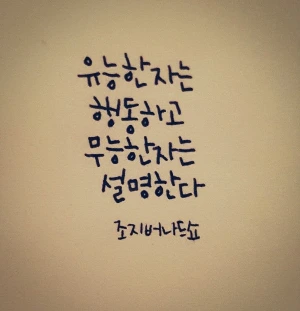 유능한 자는
행동하고
무능한자는
설명한다
조지버나드쇼